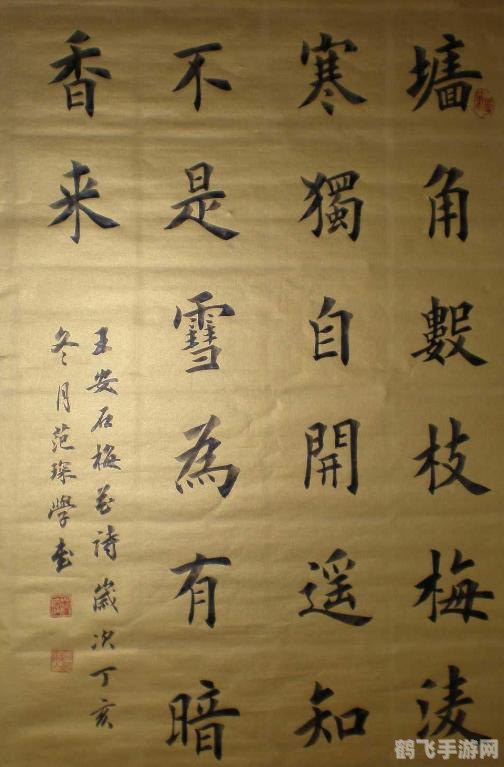 墻角數枝梅凌
寒獨自開遥知
不是雪為有暗
香来
王安石梅花詩歲次丁亥
冬月范琛學书
鹤飞手游网